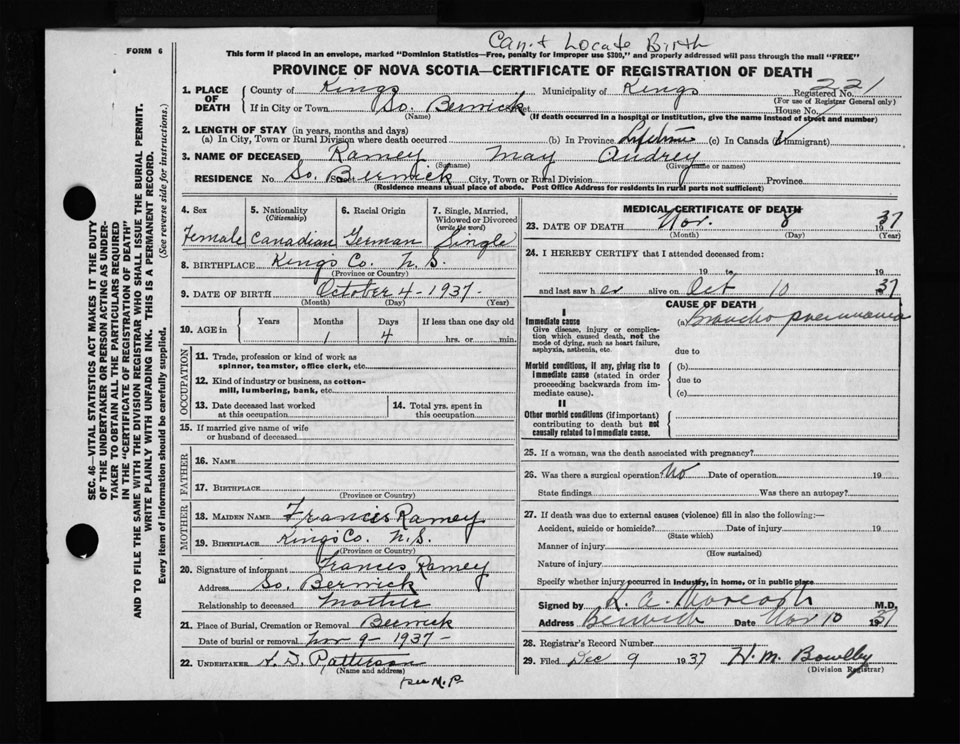 Can.t Locate Birth
FORM 6
This form if placed in an envelope, marked "Dominion Statistics—Free, penalty for improper use $300," and properly addressed will pass through the mail "FREE"
PROVINCE OF NOVA SCOTIA—CERTIFICATE OF REGISTRATION OF DEATH
1. PLACE OF DEATH
County of Kings Municipality of Kings Registered No. 221
(For use of Registrar General only)
If in City or Town So. Berwick House No.
(Name) (If death occurred in a hospital or institution, give the name instead of street and number)
2. LENGTH OF STAY (in years, months and days)
(a) In City, Town or Rural Division where death occurred (b) In Province Lifetime (c) In Canada (if immigrant)
3. NAME OF DECEASED Ramey May Audrey
(Surname) (Given name or names)
RESIDENCE No. So. Berwick City, Town or Rural Division Province
(Residence means usual place of abode. Post Office Address for residents in rural parts not sufficient)
4. Sex 5. Nationality (Citizenship) 6. Racial Origin 7. Single, Married, Widowed or Divorced (write the word)
Female Canadian German Single
8. BIRTHPLACE Kings Co. N.S.
(Province or Country)
9. DATE OF BIRTH October 4 - 1937 -
(Month) (Day) (Year)
10. AGE in Years Months Days If less than one day old
1 4 hrs. or min.
OCCUPATION
11. Trade, profession or kind of work as spinner, teamster, office clerk, etc.
12. Kind of industry or business, as cotton-mill, lumbering, bank, etc.
13. Date deceased last worked at this occupation
14. Total yrs. spent in this occupation
15. If married give name of wife or husband of deceased
FATHER
16. NAME
17. BIRTHPLACE
(Province or Country)
MOTHER
18. MAIDEN NAME Francis Ramey
19. BIRTHPLACE Kings Co. N.S.
(Province or Country)
20. Signature of informant Frances Ramey
Address So. Berwick
Relationship to deceased Mother
21. Place of Burial, Cremation or Removal Berwick
Date of burial or removal Nov 9 - 1937 -
22. UNDERTAKER Patterson
(Name and address)
per M.P.
MEDICAL CERTIFICATE OF DEATH
23. DATE OF DEATH Nov. 8 1937
(Month) (Day) (Year)
24. I HEREBY CERTIFY that I attended deceased from:
19 to 19
and last saw her alive on Oct 10 1937
CAUSE OF DEATH
I
Immediate cause (a) Broncho pneumonia
Give disease, injury or complication which caused death, not the mode of dying, such as heart failure, asphyxia, asthenia, etc.
due to
Morbid conditions, if any, giving rise to Immediate cause (stated in order proceeding backwards from immediate cause).
(b)
due to
(c)
II
Other morbid conditions (if important) contributing to death but not causally related to Immediate cause.
25. If a woman, was the death associated with pregnancy?
26. Was there a surgical operation? No Date of operation 19
State findings Was there an autopsy?
27. If death was due to external causes (violence) fill in also the following:—
Accident, suicide or homicide? Date of injury 19
(State which)
Manner of injury
(How sustained)
Nature of injury
Specify whether injury occurred in industry, in home, or in public place
Signed by M.D.
Address Berwick Date Nov 10 1937
28. Registrar's Record Number
29. Filed Dec 9 1937 H. M. Bowlby
(Division Registrar)
SEC. 46—VITAL STATISTICS ACT MAKES IT THE DUTY
OF THE UNDERTAKER OR PERSON ACTING AS UNDER-
TAKER TO OBTAIN ALL THE PARTICULARS REQUIRED
IN THE "CERTIFICATE OF REGISTRATION OF DEATH"
AND TO FILE THE SAME WITH THE DIVISION REGISTRAR WHO SHALL ISSUE THE BURIAL PERMIT.
WRITE PLAINLY WITH UNFADING INK. THIS IS A PERMANENT RECORD.
Every item of information should be carefully supplied. (See reverse side for instructions.)